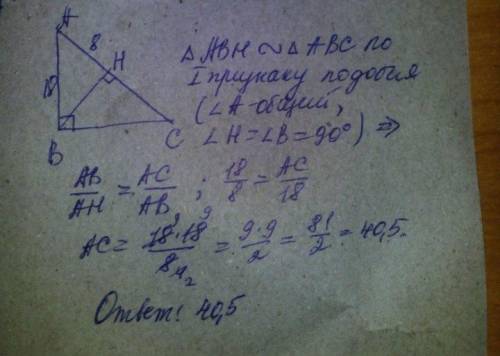 A
8
H
18
B
C
△ABH ∾ △ABC по
I признаку подобия
(∠A-общий,
∠H=∠B=90°) ⇒
AB/AH = AC/AB ; 18/8 = AC/18
AC= 18·18/8 = 9·9/2 = 81/2 = 40,5.
Ответ: 40,5